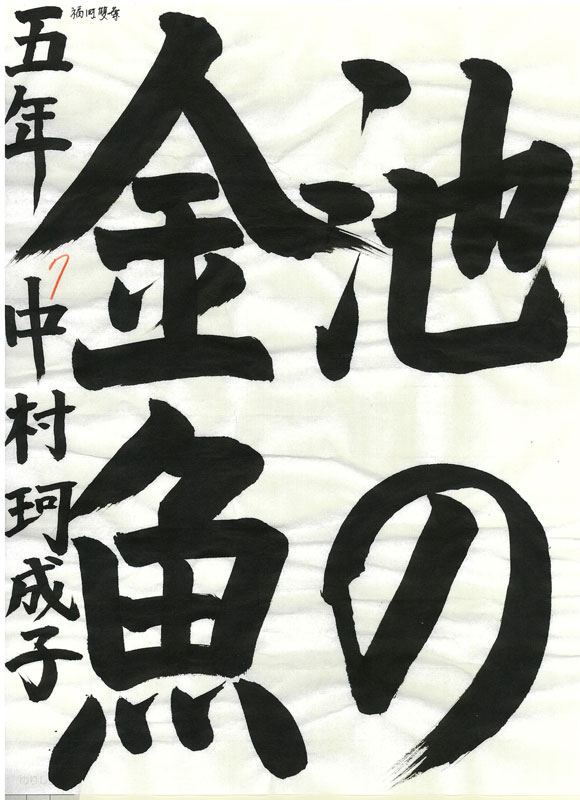 池の
金魚
五年 中村珂成子
福岡雙葉